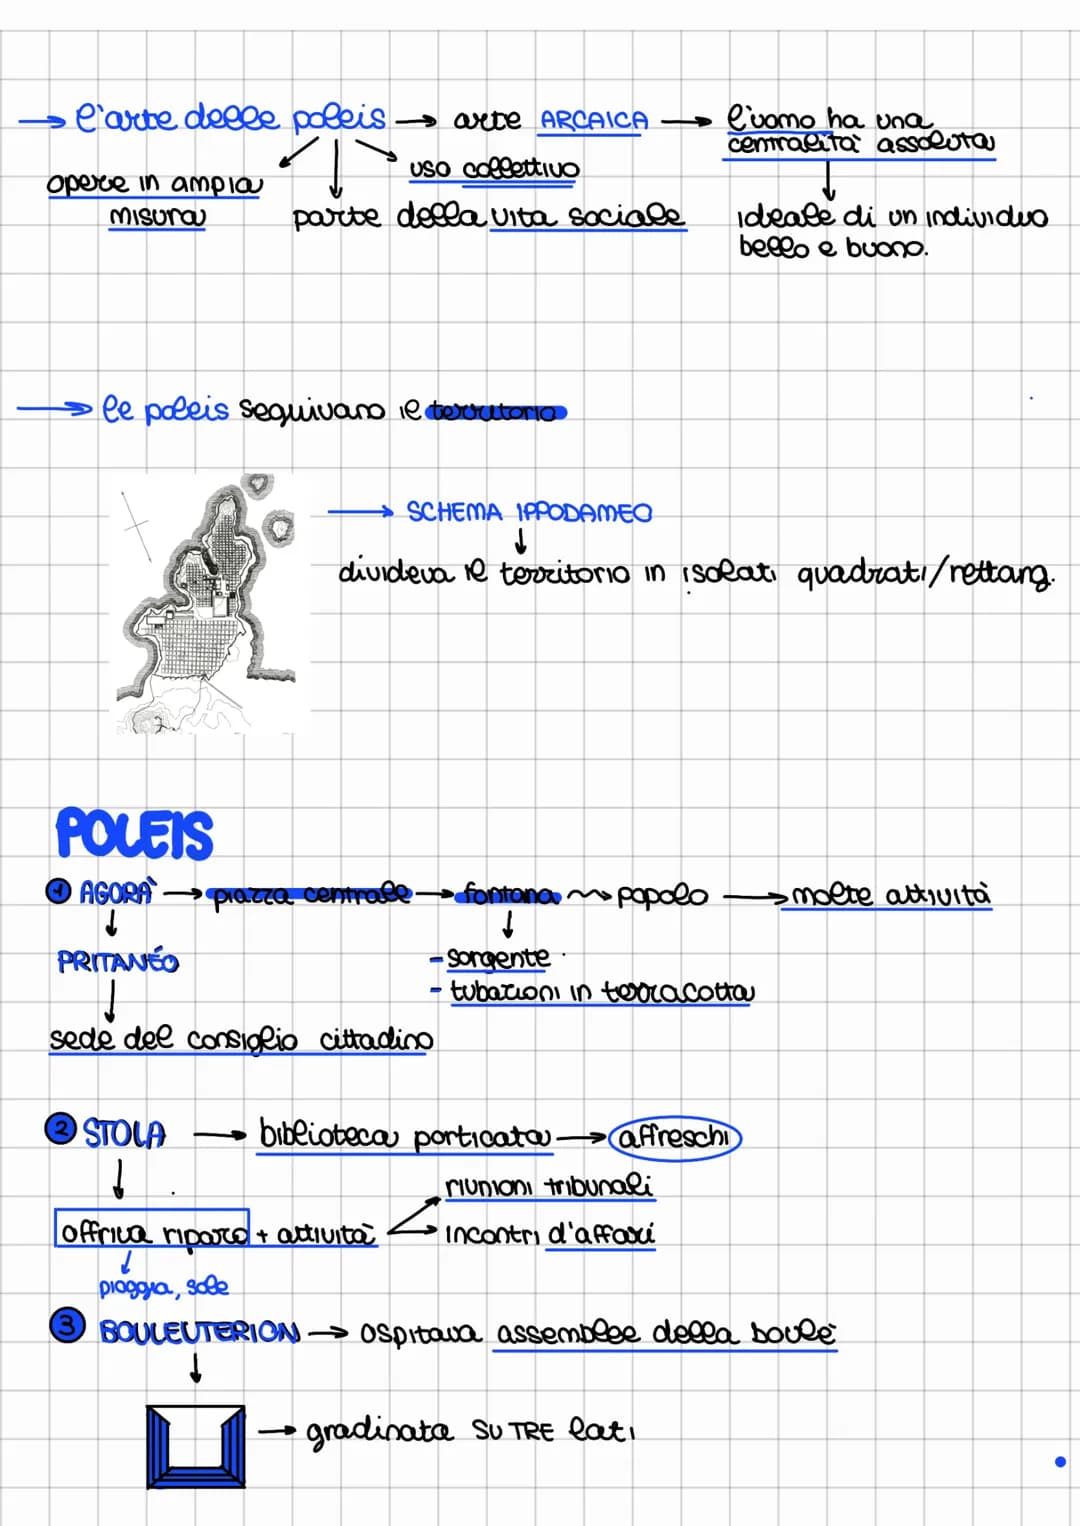 → l'arte delle poleis → arte ARCAICA → l'uomo ha una
centralità assoluta
opere in ampia
misura
uso collettivo
parte della vita sociale
ideale di un individuo
bello e buono.
→ le poleis seguivano il territorio
→ SCHEMA IPPODAMEO
divideva il territorio in isolati quadrati/rettang.
POLEIS
1 AGORÀ → piazza centrale → fontana ~> popolo → molte attività
PRITANÉO
- sorgente
- tubazioni in terracotta
sede del consiglio cittadino
2 STOLA → biblioteca porticata → affreschi
riunioni tribunali
offriva riparo + attività
incontri d'affari
pioggia, sole
3 BOULEUTERION → ospitava assemblee della boulé
→ gradinata SU TRE lati